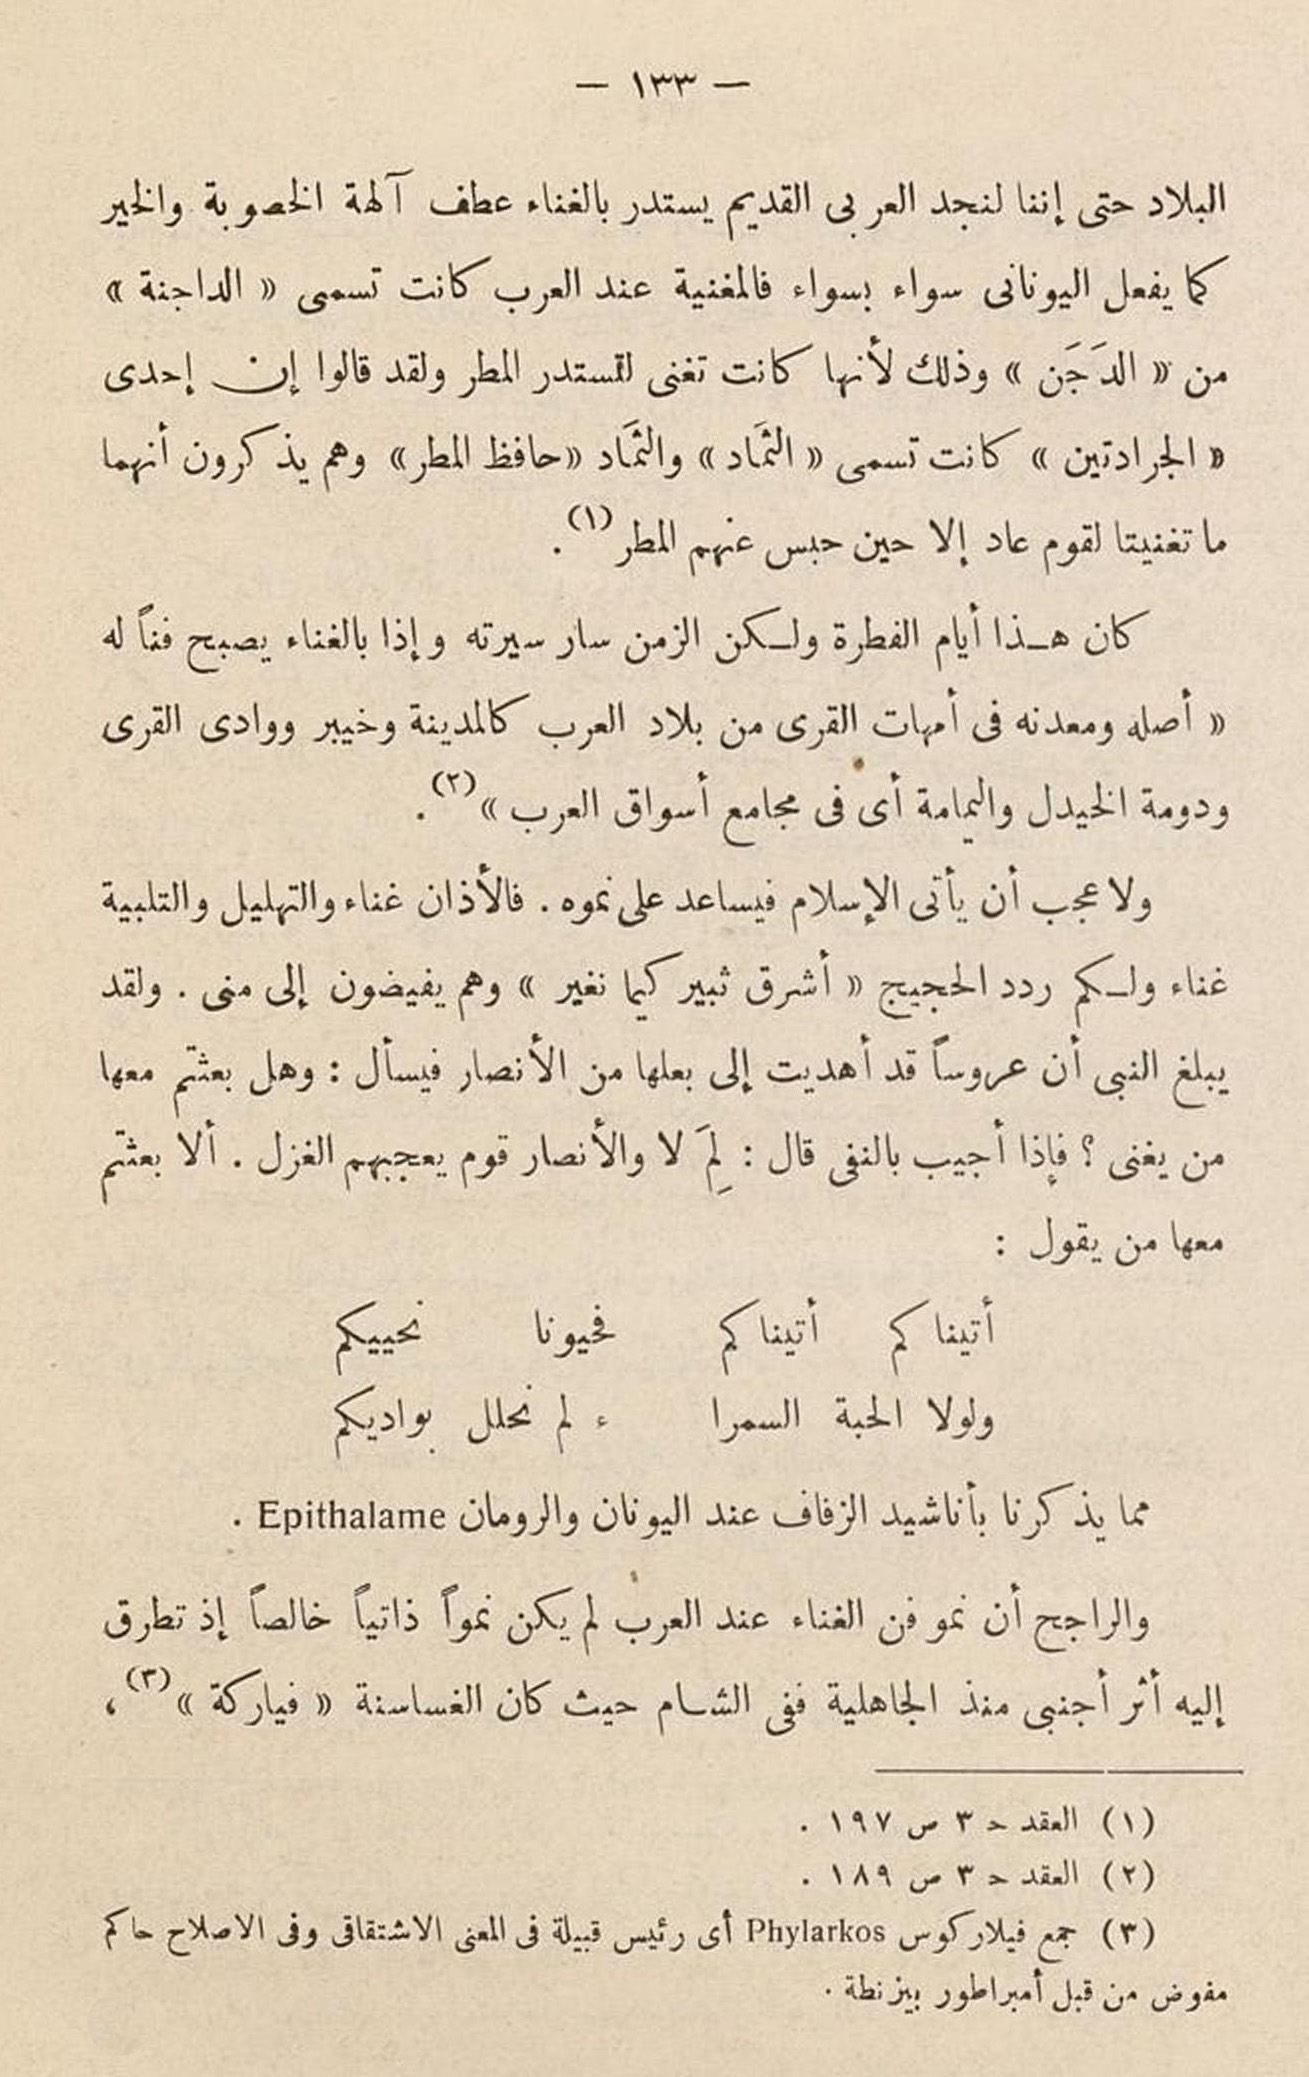 — ١٣٣ —
البلاد حتى إننا لنجد العربى القديم يستدر بالغناء عطف آلهة الخصوبة والخير
كما يفعل اليونانى سواء بسواء فالمغنية عند العرب كانت تسمى « الداجنة »
من « الدَجَن » وذلك لأنها كانت تغنى لتستدر المطر ولقد قالوا إن إحدى
« الجرادتين » كانت تسمى « الثَمَاد » والثَمَاد «حافظ المطر» وهم يذكرون أنهما
ما تغنيتا لقوم عاد إلا حين حبس عنهم المطر (١) .
كان هـذا أيام الفطرة ولـكن الزمن سار سيرته وإذا بالغناء يصبح فناً له
« أصله ومعدنه فى أمهات القرى من بلاد العرب كالمدينة وخيبر ووادى القرى
ودومة الخيدل واليمامة أى فى مجامع أسواق العرب » (٢) .
ولا عجب أن يأتى الإسلام فيساعد على نموه . فالأذان غناء والتهليل والتلبية
غناء ولـكم ردد الحجيج « أشرق ثبير كيما نغير » وهم يفيضون إلى منى . ولقد
يبلغ النبى أن عروساً قد أهديت إلى بعلها من الأنصار فيسأل : وهل بعثتم معها
من يغنى ؟ فإذا أجيب بالنفى قال : لِمَ لا والأنصار قوم يعجبهم الغزل . ألا بعثتم
معها من يقول :
أتيناكم أتيناكم فحيونا نحييكم
ولولا الحبة السمرا ء لم نحلل بواديكم
مما يذكرنا بأناشيد الزفاف عند اليونان والرومان Epithalame .
والراجح أن نمو فن الغناء عند العرب لم يكن نمواً ذاتياً خالصاً إذ تطرق
إليه أثر أجنبى منذ الجاهلية ففى الشـام حيث كان الغساسنة « فياركة » (٣) ،
(١) العقد حـ ٣ ص ١٩٧ .
(٢) العقد حـ ٣ ص ١٨٩ .
(٣) جمع فيلاركوس Phylarkos أى رئيس قبيلة فى المعنى الاشتقاقى وفى الاصلاح حاكم
مفوض من قبل أمبراطور بيزنطة .